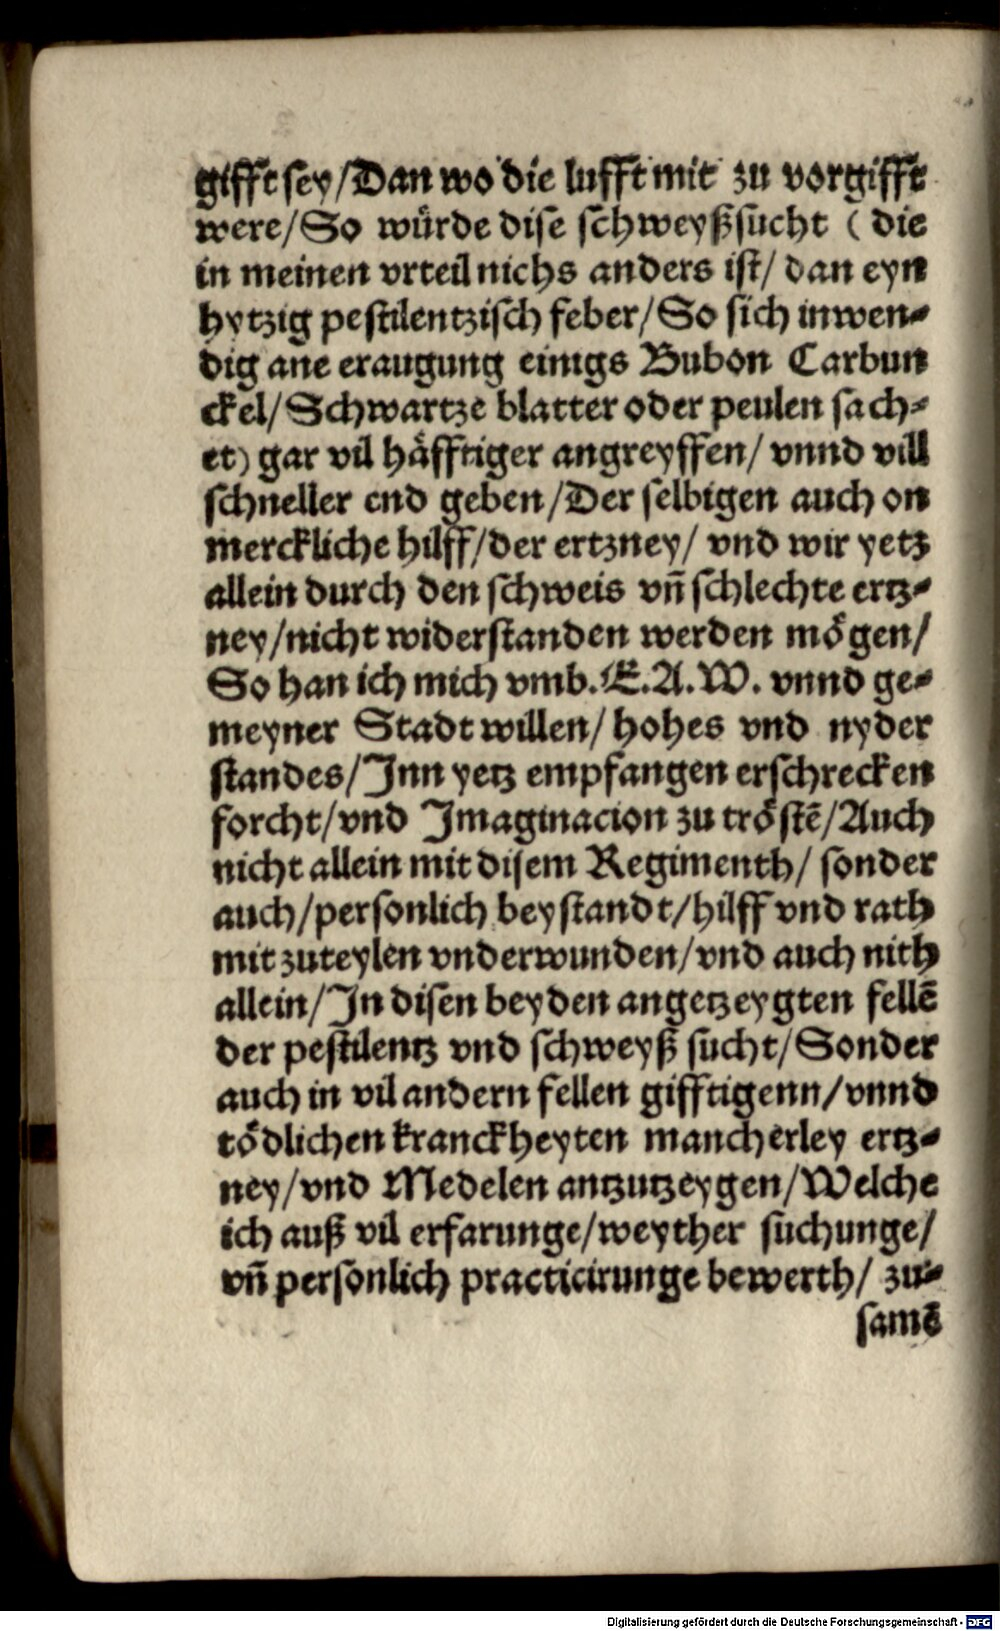 gifft sey/Dan wo die lufft mit zu vorgifft
were/So würde dise schweyßsucht ( die
in meinen vrteil nichs anders ist/ dan eyn
hytzig pestilentzisch feber/So sich inwen-
dig ane eraugung einigs Bubon Carbun
ckel/Schwartze blatter oder peulen sach-
et) gar vil häfftiger angreyffen/ vnnd vill
schneller end geben/Der selbigen auch on
merckliche hilff/der ertzney/ vnd wir yetz
allein durch den schweis vñ schlechte ertz-
ney/nicht widerstanden werden mögen/
So han ich mich vmb.E.A.W. vnnd ge-
meyner Stadt willen/ hohes vnd nyder
standes/Inn yetz empfangen erschrecken
forcht/vnd Imaginacion zu tröstē/Auch
nicht allein mit disem Regimenth/ sonder
auch/personlich beystandt/hilff vnd rath
mit zuteylen vnderwunden/vnd auch nith
allein/In disen beyden angetzeygten fellē
der pestilentz vnd schweyß sucht/Sonder
auch in vil andern fellen gifftigenn/vnnd
tödlichen kranckheyten mancherley ertz-
ney/vnd Medelen antzutzeygen/Welche
ich auß vil erfarunge/weyther suchunge/
vñ personlich practicirunge bewerth/ zu-
samē
Digitalisierung gefördert durch die Deutsche Forschungsgemeinschaft - DFG